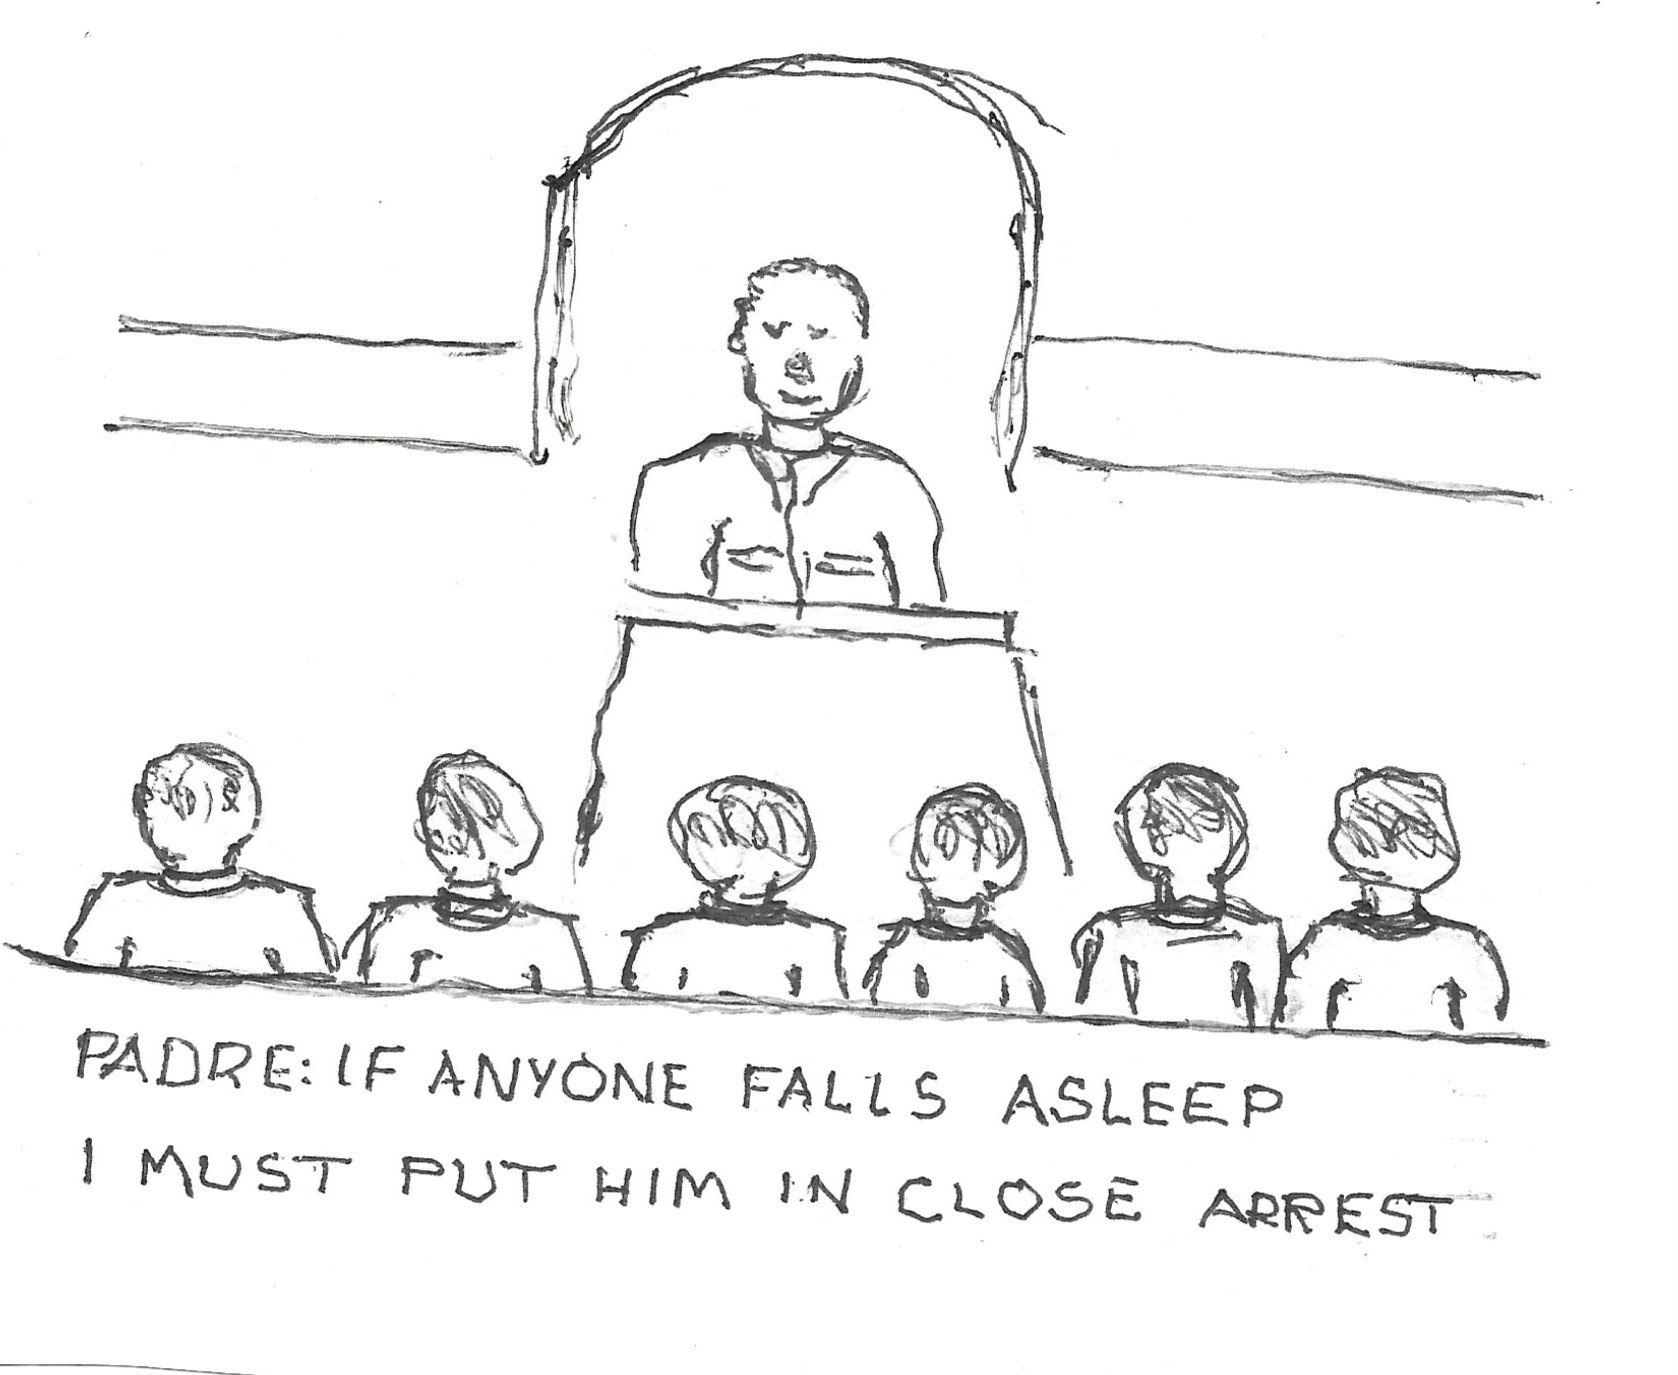 PADRE: IF ANYONE FALLS ASLEEP
I MUST PUT HIM IN CLOSE ARREST